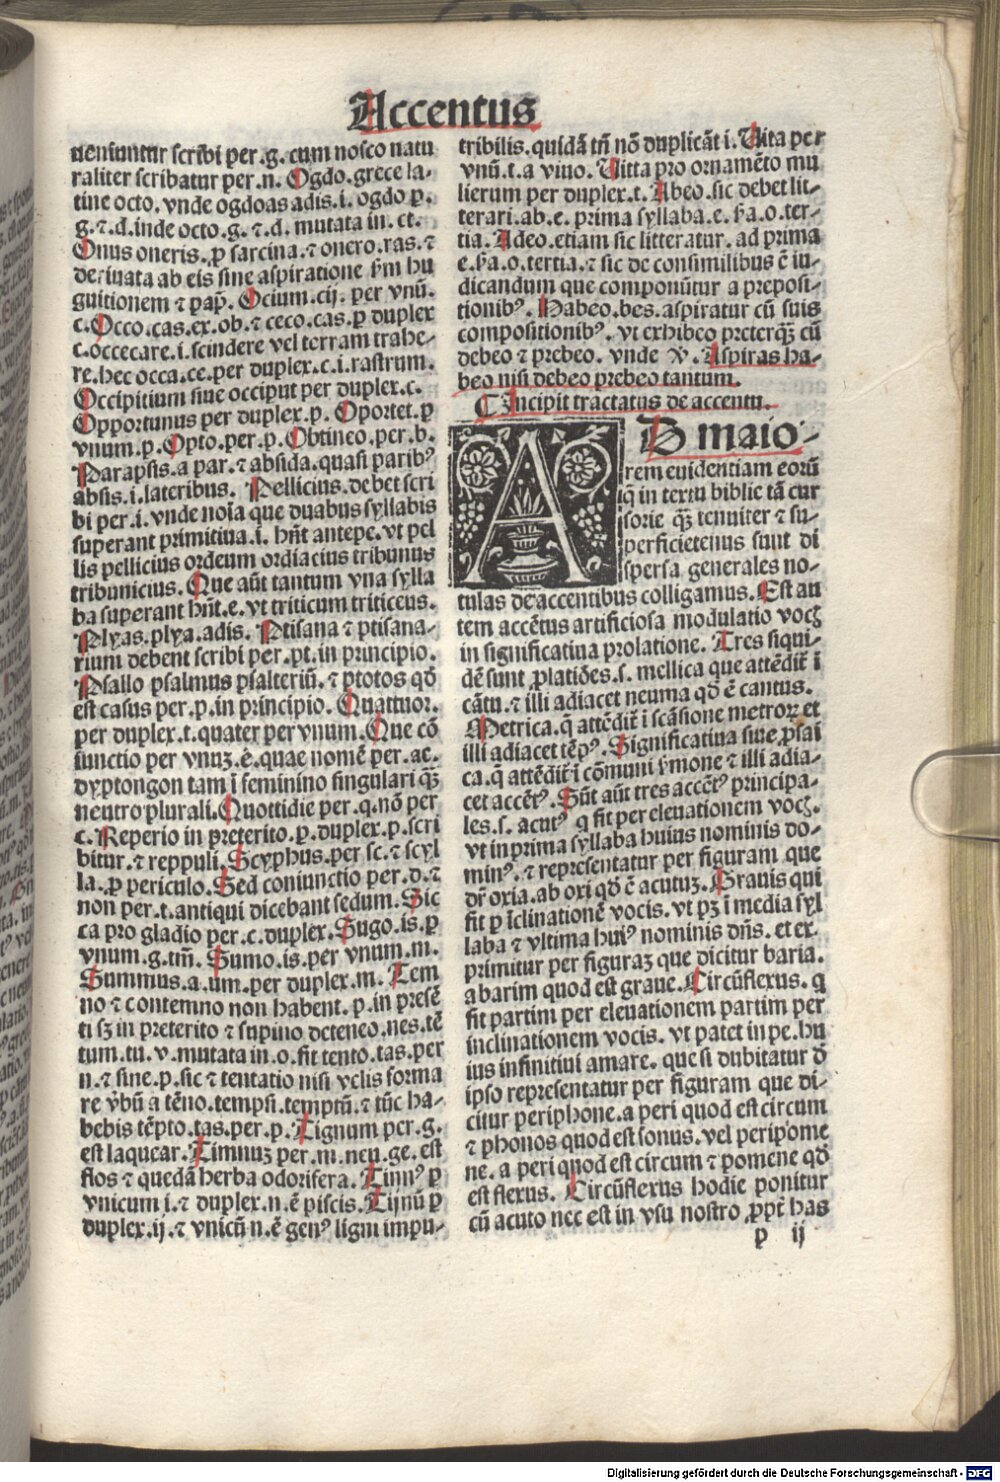 Accentus
ueniuntur scribi per.g.cum nosco natu
raliter scribatur per.n. Ogdo.grece la-
tine octo.vnde ogdoas adis.i.ogdo ꝑ.
g.⁊.d.inde octo.g.⁊.d.mutata in.ct.
Onus oneris.ꝓ sarcina.⁊ onero.ras.⁊
deriuata ab eis sine aspiratione ẜm hu
guitionem ⁊ pap̄. Ocium.cij.per vnū.
c.Occo.cas.ex.ob.⁊ ceco.cas.ꝑ duplex
c.occecare.i.scindere vel terram trahe-
re.hec occa.ce.per duplex.c.i.rastrum.
Occipitium siue occiput per duplex.c.
Opportunus per duplex.p. Oportet.ꝑ
vnum.p.Opto.per.p.Obtineo.per.b.
Parapsis.a par.⁊ absida.quasi paribꝰ
absis.i.lateribus. Pellicius.debet scri
bi per.i.vnde noīa que duabus syllabis
superant primitiua.i.hn̄t antepe.vt pel
lis pellicius ordeum ordiacius tribunus
tribunicius. Que aūt tantum vna sylla
ba superant hn̄t.e.vt triticum triticeus.
Plyas.plya.adis. Ptisana ⁊ ptisana-
rium debent scribi per.pt.in principio.
Psallo psalmus psalteriū.⁊ ptotos qđ
est casus per.p.in principio. Quattuor.
per duplex.t.quater per vnum. Que cō
iunctio per vnuꝫ.e.quae nomē per.ae.
dyptongon tam ī feminino singulari qͣꝫ
neutro plurali.Quottidie per.q.nō per
c.Reperio in preterito.ꝑ.duplex.p.scri
bitur.⁊ reppuli.Scyphus.per sc.⁊ scyl
la.ꝓ periculo.Sed coniunctio per.d.⁊
non per.t.antiqui dicebant sedum.Sic
ca pro gladio per.c.duplex.Sugo.is.ꝑ
vnum.g.tm̄. Sumo.is.per vnum.m.
Summus.a.um.per duplex.m. Tem
no ⁊ contemno non habent.p.in presē
ti sꝫ in preterito ⁊ supino deteneo.nes.tē
tum.tu.v.mutata in.o.fit tento.tas.per
n.⁊ sine.p.sic ⁊ tentatio nisi velis forma
re v̄bū a tēno.tempsi.temptū.⁊ tūc ha-
bebis tēpto.tas.per.p.Tignum per.g.
est laquear.Timnuꝫ per.m.neu.ge.est
flos ⁊ quedā herba odorifera.Tinnꝰ ꝑ
vnicum i.⁊ duplex.n.ē piscis.Tijnū ꝑ
duplex.ij.⁊ vnicū.n.ē genꝰ ligni impu-
tribilis.quidā tn̄ nō duplicāt i.Vita per
vnū.t.a viuo. Vitta pro ornamēto mu
lierum per duplex.t.Abeo.sic debet lit-
terari.ab.e.prima syllaba.e.ẜa.o.ter-
tia.Adeo.etiam sic litteratur.ad prima
e.ẜa.o.tertia.⁊ sic de consimilibus ē iu-
dicandum que componūtur a preposi-
tionibꝰ. Habeo.bes.aspiratur cū suis
compositionibꝰ.vt exhibeo preterqͣꝫ cū
debeo ⁊ prebeo.vnde ꝟ.Aspiras ha-
beo nisi debeo prebeo tantum.
⸿ Incipit tractatus de accentu.
AD maio-
rem euidentiam eorū
q̄ in textu biblie tā cur
sorie qͣꝫ tenuiter ⁊ su-
perficietenus sunt di
spersa generales no-
tulas de accentibus colligamus.Est au
tem accētus artificiosa modulatio vocꝫ
in significatiua prolatione. Tres siqui-
dē sunt ꝓlatiōes.s.mellica que attēdiť ī
cātu.⁊ illi adiacet neuma qđ ē cantus.
Metrica.q̄ attēdiť ī scāsione metroꝝ et
illi adiacet tēpꝰ.Significatiua siue ꝓsai
ca.q̄ attēdiť ī cōmuni ẜmone ⁊ illi adia-
cet accētꝰ.Sūt aūt tres accētꝰ principa-
les.s.acutꝰ q fit per eleuationem vocꝫ.
vt in prima syllaba huius nominis do-
minꝰ.⁊ representatur per figuram que
dr̄ oxia.ab oxi qđ ē acutuꝫ.Grauis qui
fit ꝑ īclinationē vocis.vt pꝫ ī media syl
laba ⁊ vltima huiꝰ nominis dn̄s.et ex-
primitur per figuraꝫ que dicitur baria.
a barim quod est graue.Circūflexus.q
fit partim per eleuationem partim per
inclinationem vocis.vt patet in pe.hu
ius infinitiui amare.que si dubitatur đ
ipso representatur per figuram que di-
citur periphone.a peri quod est circum
⁊ phonos quod est sonus.vel peripome
ne.a peri quod est circum ⁊ pomene qđ
est flexus. Circūflexus hodie ponitur
cū acuto nec est in vsu nostro ꝓpt̄ has
p ij
Digitalisierung gefördert durch die Deutsche Forschungsgemeinschaft - DFG